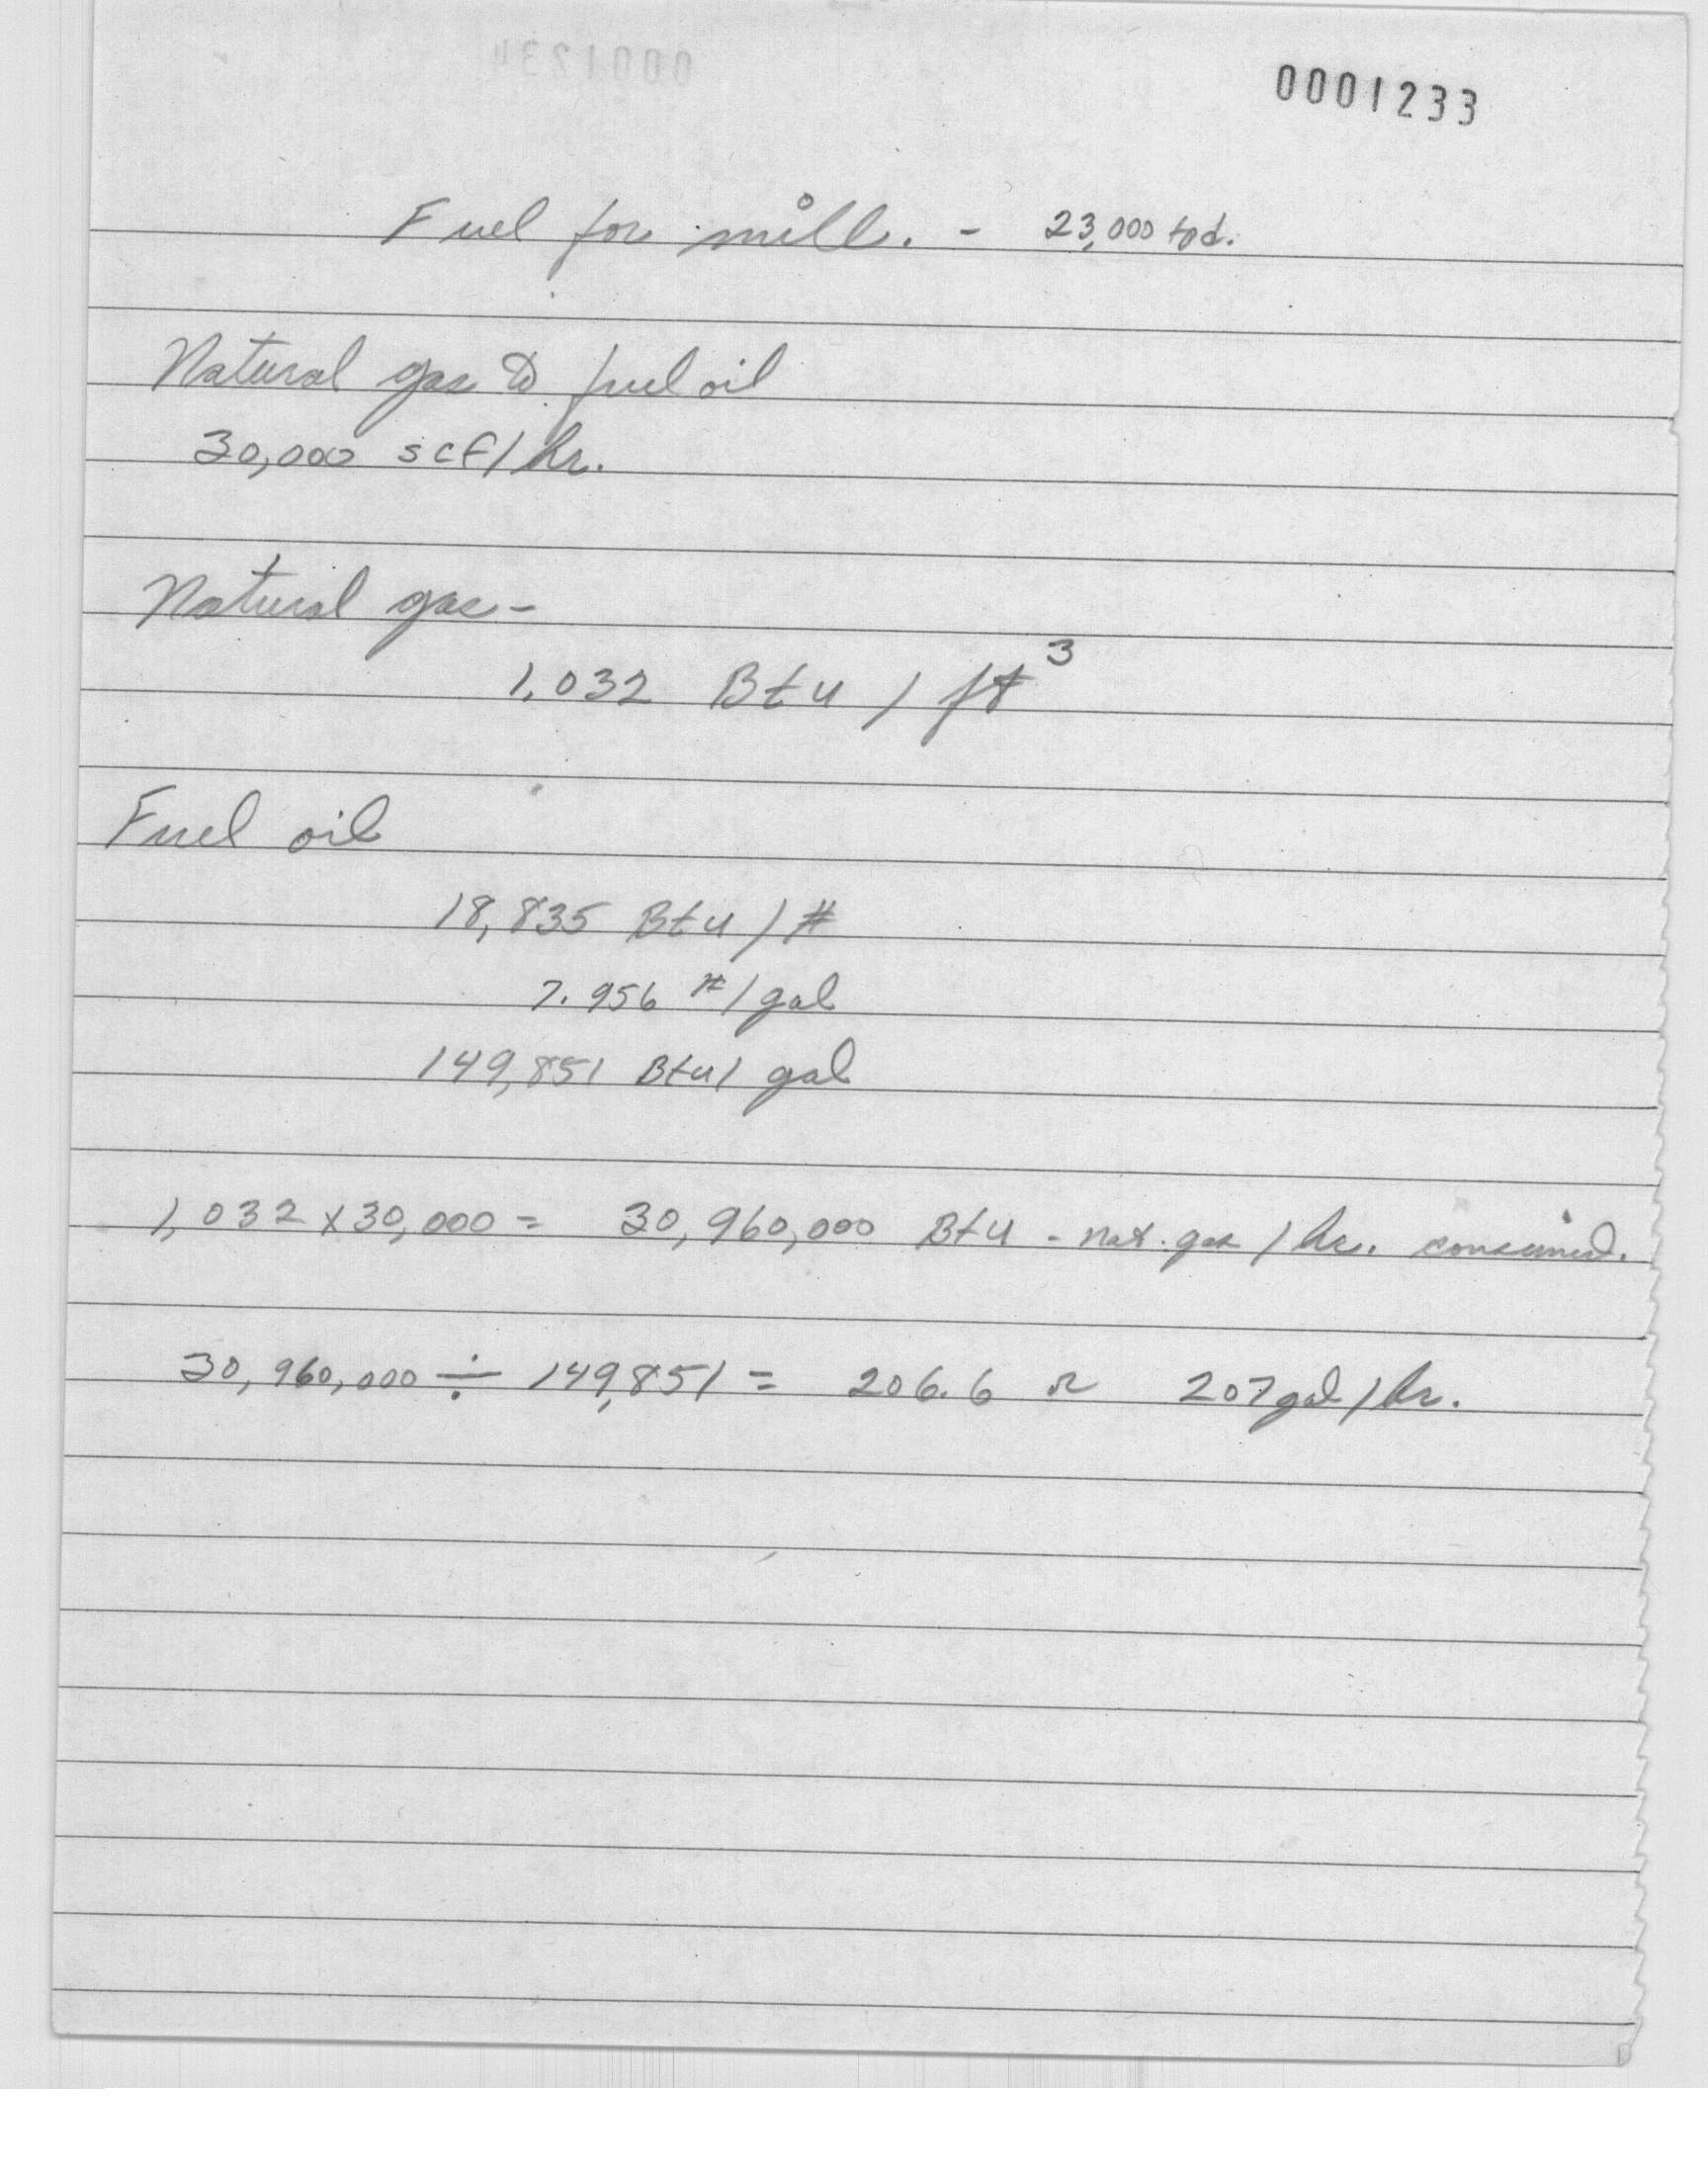 0001234
0001233
Fuel for mill. - 23,000 tpd.
Natural gas to fuel oil
30,000 scf/hr.
Natural gas -
1,032 Btu / ft³
Fuel oil
18,835 Btu / #
7.956 #/gal
149,851 Btu/ gal
1,032 x 30,000 = 30,960,000 Btu - nat. gas / hr. consumed.
30,960,000 ÷ 149,851 = 206.6 or 207 gal / hr.